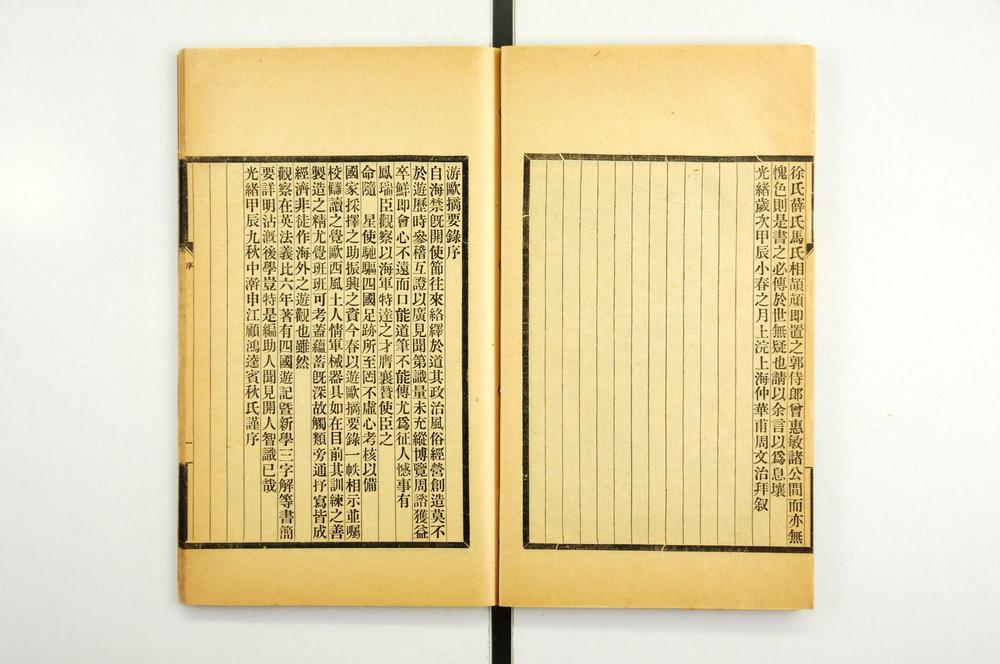 徐氏薛氏馬氏相頡頏即置之郭侍郎曾惠敏諸公間而亦無
愧色則是書之必傳於世無疑也請以余言以爲息壤
光緒歲次甲辰小春之月上浣上海仲華甫周文治拜叙
游歐摘要錄序
自海禁既開使節往來絡繹於道其政治風俗經營創造莫不
於遊歷時參稽互證以廣見聞第識量未充縱博覽周諮獲益
卒鮮即會心不遠而口能道筆不能傳尤爲征人憾事有
鳳瑞臣觀察以海軍特達之才膺襄贊使臣之
命隨　星使馳驅四國足跡所至罔不虛心考核以備
國家採擇之助振興之資今春以遊歐摘要錄一帙相示並囑
校讎讀之覺歐西風土人情軍械器具如在目前其訓練之善
製造之精尤覺班班可考蓋蘊蓄既深故觸類旁通抒寫皆成
經濟非徒作海外之遊觀也雖然
觀察在英法義比六年著有四國遊記曁新學三字解等書簡
要詳明沾漑後學豈特是編助人聞見開人智識已哉
光緒甲辰九秋中澣申江顧鴻逵賓秋氏謹序
序
一